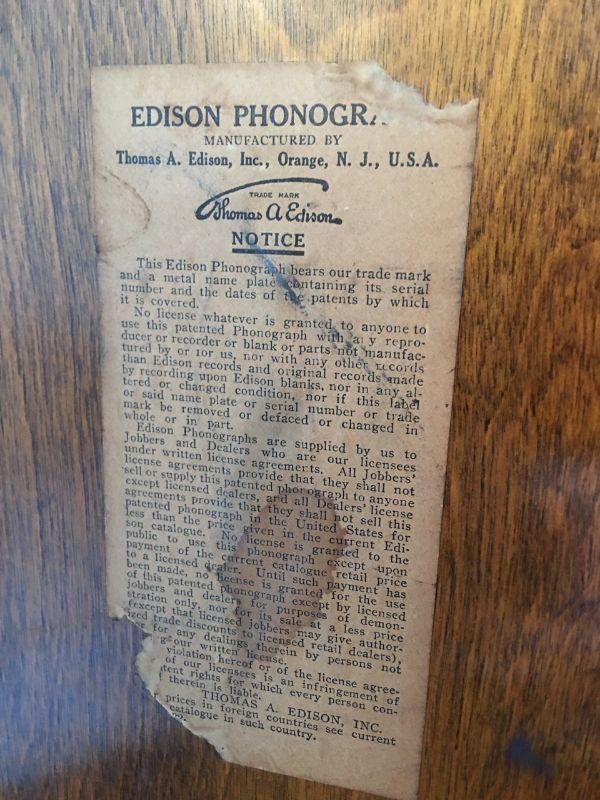 EDISON PHONOGRA
MANUFACTURED BY
Thomas A. Edison, Inc., Orange, N. J., U.S.A.
TRADE MARK
Thomas A Edison
NOTICE
This Edison Phonograph bears our trade mark
and a metal name plate containing its serial
number and the dates of the patents by which
it is covered.
No license whatever is granted to anyone to
use this patented Phonograph with any repro-
ducer or recorder or blank or parts not manufac-
tured by or for us, nor with any other records
than Edison records and original records made
by recording upon Edison blanks, nor in any al-
tered or changed condition, nor if this label
or said name plate or serial number or trade
mark be removed or defaced or changed in
whole or in part.
Edison Phonographs are supplied by us to
Jobbers and Dealers who are our licensees
under written license agreements. All Jobbers'
license agreements provide that they shall not
sell or supply this patented phonograph to anyone
except licensed dealers, and all Dealers' license
agreements provide that they shall not sell this
patented phonograph in the United States for
less than the price given in the current Edi-
son catalogue. No license is granted to the
public to use this phonograph except upon
payment of the current catalogue retail price
to a licensed dealer. Until such payment has
been made, no license is granted for the use
of this patented phonograph except by licensed
jobbers and dealers for purposes of demon-
stration only, nor for its sale at a less price
(except that licensed jobbers may give author-
ized trade discounts to licensed retail dealers),
or for any dealings therein by persons not
g our written license.
violation hereof or of the license agree-
of our licensees is an infringement of
tent rights for which every person con-
therein is liable.
THOMAS A. EDISON, INC.
prices in foreign countries see current
catalogue in such country.